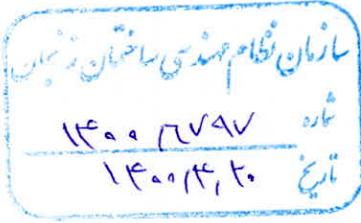 سازمان نظام مهندسی ساختمان زنجان
شماره
تاریخ ۱۴۰۰٫۴٫۲۰